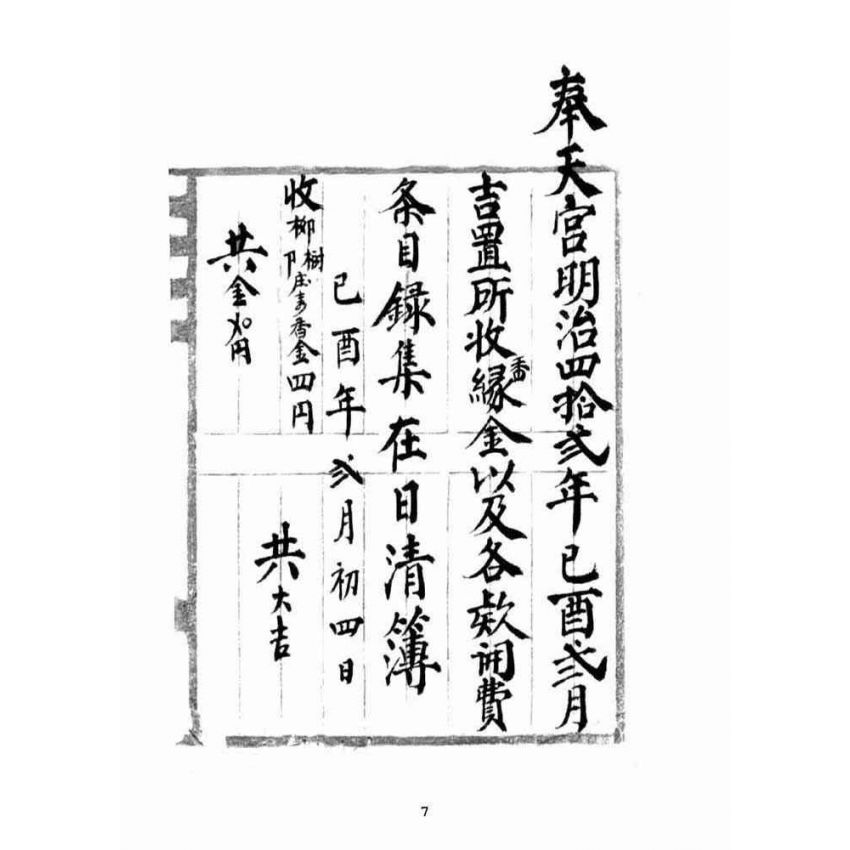 奉天宮明治四拾弍年己酉弍月
吉置所收香縁金以及各欵開費
条目録集在日清簿
己酉年弍月初四日
收柳樹庄香金四円
共大吉
共金円
7